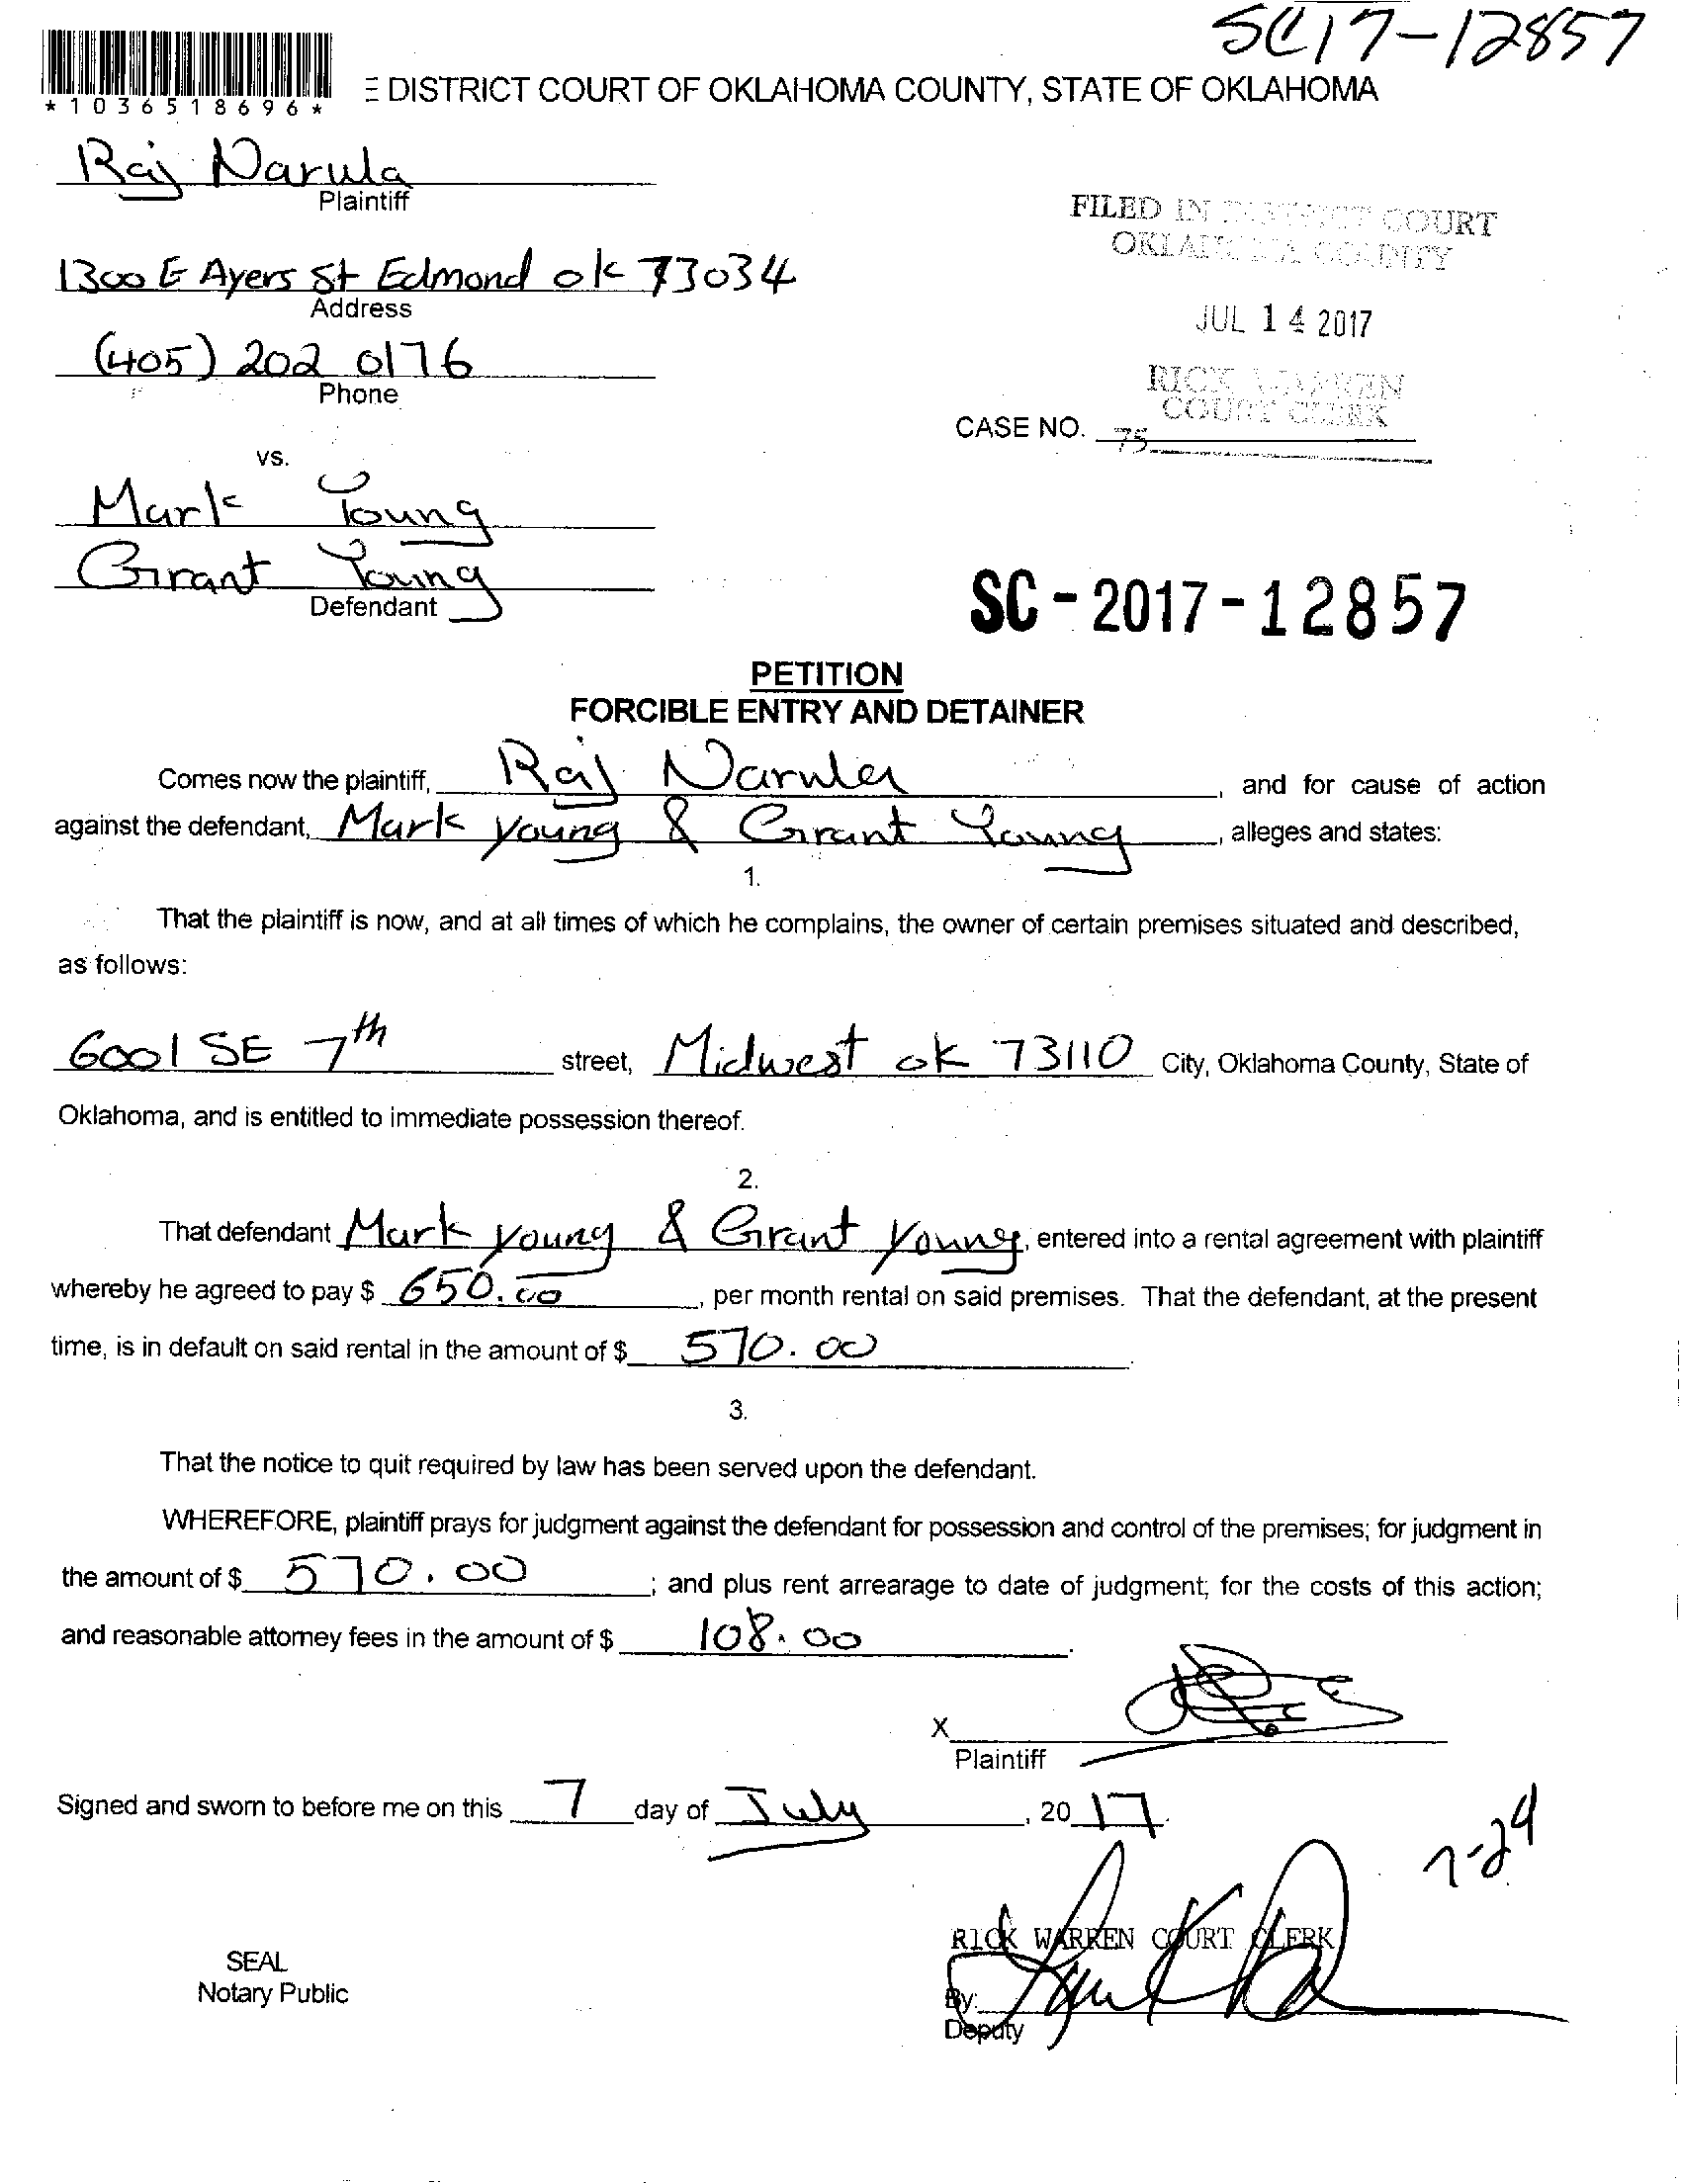 SC17-12857
*1036518696*
E DISTRICT COURT OF OKLAHOMA COUNTY, STATE OF OKLAHOMA
Raj Narula
Plaintiff
FILED IN DISTRICT COURT
OKLAHOMA COUNTY
1300 E Ayers St Edmond ok 73034
Address
JUL 14 2017
(405) 202 0176
Phone
RICK WARREN
COURT CLERK
CASE NO.
75
vs.
Mark Young
Grant Young
Defendant
SC-2017-12857
PETITION
FORCIBLE ENTRY AND DETAINER
Comes now the plaintiff, Raj Narula, and for cause of action
against the defendant, Mark Young & Grant Young, alleges and states:
1.
That the plaintiff is now, and at all times of which he complains, the owner of certain premises situated and described,
as follows:
6001 SE 7th street, Midwest ok 73110 City, Oklahoma County, State of
Oklahoma, and is entitled to immediate possession thereof.
2.
That defendant Mark Young & Grant Young, entered into a rental agreement with plaintiff
whereby he agreed to pay $ 650.00, per month rental on said premises. That the defendant, at the present
time, is in default on said rental in the amount of $ 570.00.
3.
That the notice to quit required by law has been served upon the defendant.
WHEREFORE, plaintiff prays for judgment against the defendant for possession and control of the premises; for judgment in
the amount of $ 570.00; and plus rent arrearage to date of judgment; for the costs of this action;
and reasonable attorney fees in the amount of $ 108.00.
X
Plaintiff
Signed and sworn to before me on this 7 day of July, 2017.
7-24
RICK WARREN COURT CLERK
SEAL
Notary Public
By:
Deputy